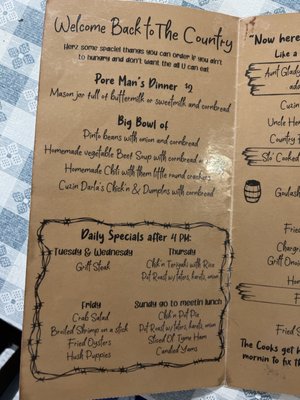 Welcome Back to The Country
Herz some spaciel thangs you can order if you ain't
to hungry and don't want the all U can eat
Pore Man's Dinner $2
Mason jar full of buttermilk or sweetmilk and cornbread
Big Bowl of
Pinto beans with onion and cornbread
Homemade vegetable Beef Soup with cornbread or
Homemade Chili with them little round crackers
Cuzin Darla's Chick'n & Dumplns with cornbread
Daily Specials after 4 PM:
Tuesday & Wednesday
Grill Steak
Thursday
Chik'n Teriyaki with Rice
Pot Roast w/taters, karits, onion
Friday
Crab Salad
Broiled Shrimp on a stick
Fried Oysters
Hush Puppies
Sunday go to meetin lunch
Chik'n Pot Pie
Pot Roast w/taters, karits, onion
Sliced Ol' Tyme Ham
Candied Yams
"Now here
Like a
Aunt Glady
Cuzin
Uncle Hom
Country
Slo' Cooked
Goulash
Fried
Charg
Grill Onio
Fried
Fried S
The Cooks get
mornin to fix th